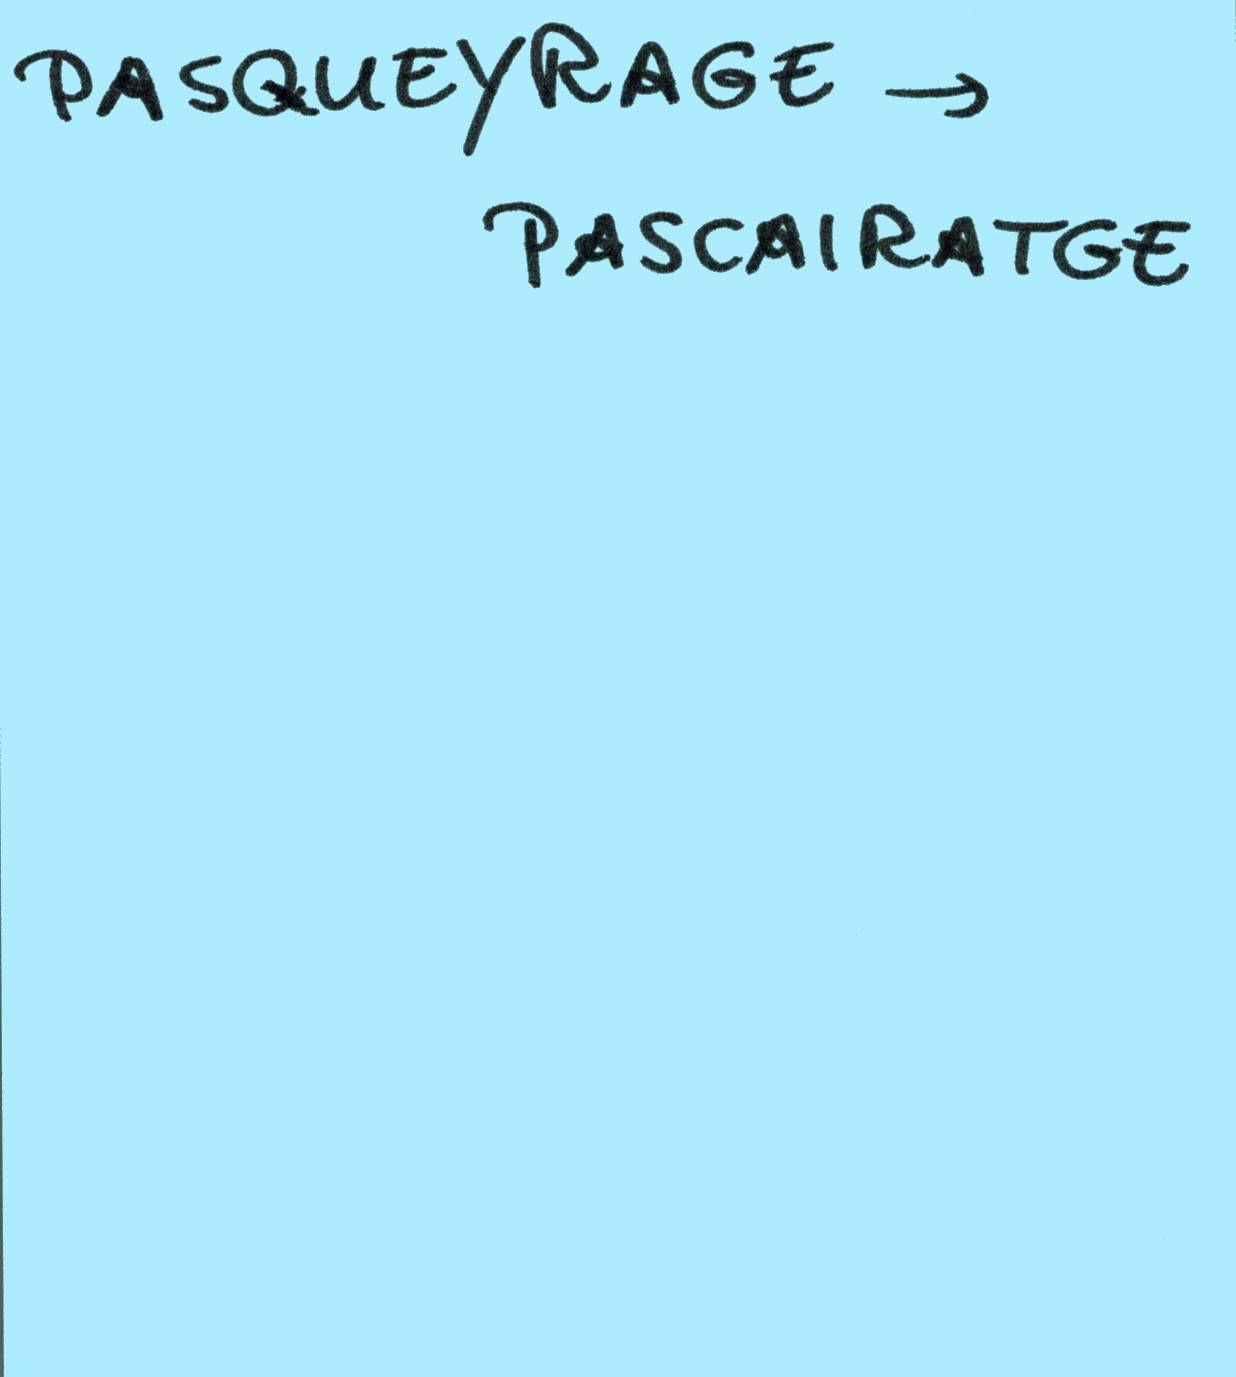 PASQUEYRAGE →
PASCAIRATGE